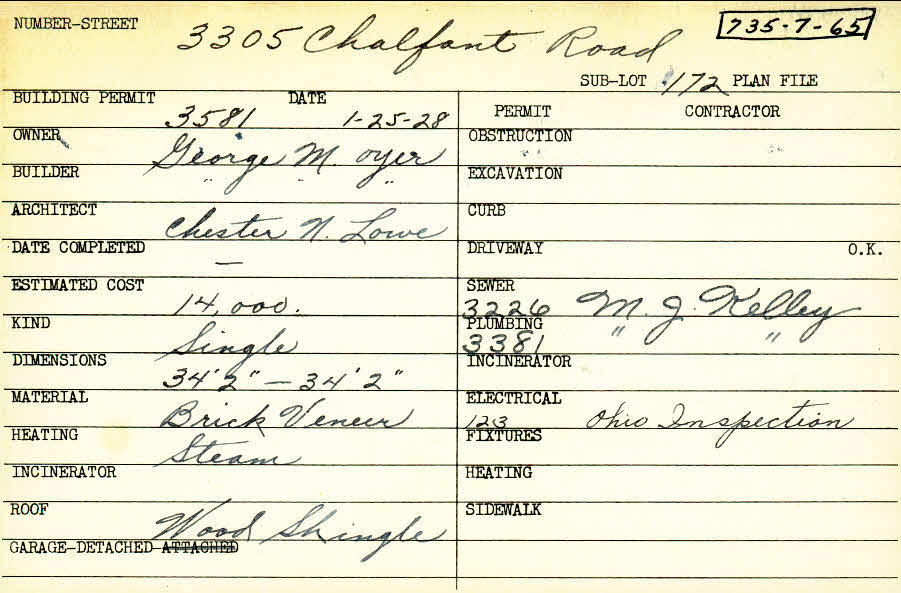 NUMBER-STREET 3305 Chalfant Road 735-7-65
SUB-LOT 172 PLAN FILE
BUILDING PERMIT 3581 DATE 1-25-28
OWNER George M. Oyer
BUILDER " " "
ARCHITECT Chester N. Lowe
DATE COMPLETED —
ESTIMATED COST 14,000.
KIND Single
DIMENSIONS 34'2" — 34'2"
MATERIAL Brick Veneer
HEATING Steam
INCINERATOR
ROOF Wood Shingle
GARAGE-DETACHED-ATTACHED
PERMIT CONTRACTOR
OBSTRUCTION
EXCAVATION
CURB
DRIVEWAY O.K.
SEWER 3226 M. J. Kelley
PLUMBING 3381 " "
INCINERATOR
ELECTRICAL 123 Ohio Inspection
FIXTURES
HEATING
SIDEWALK